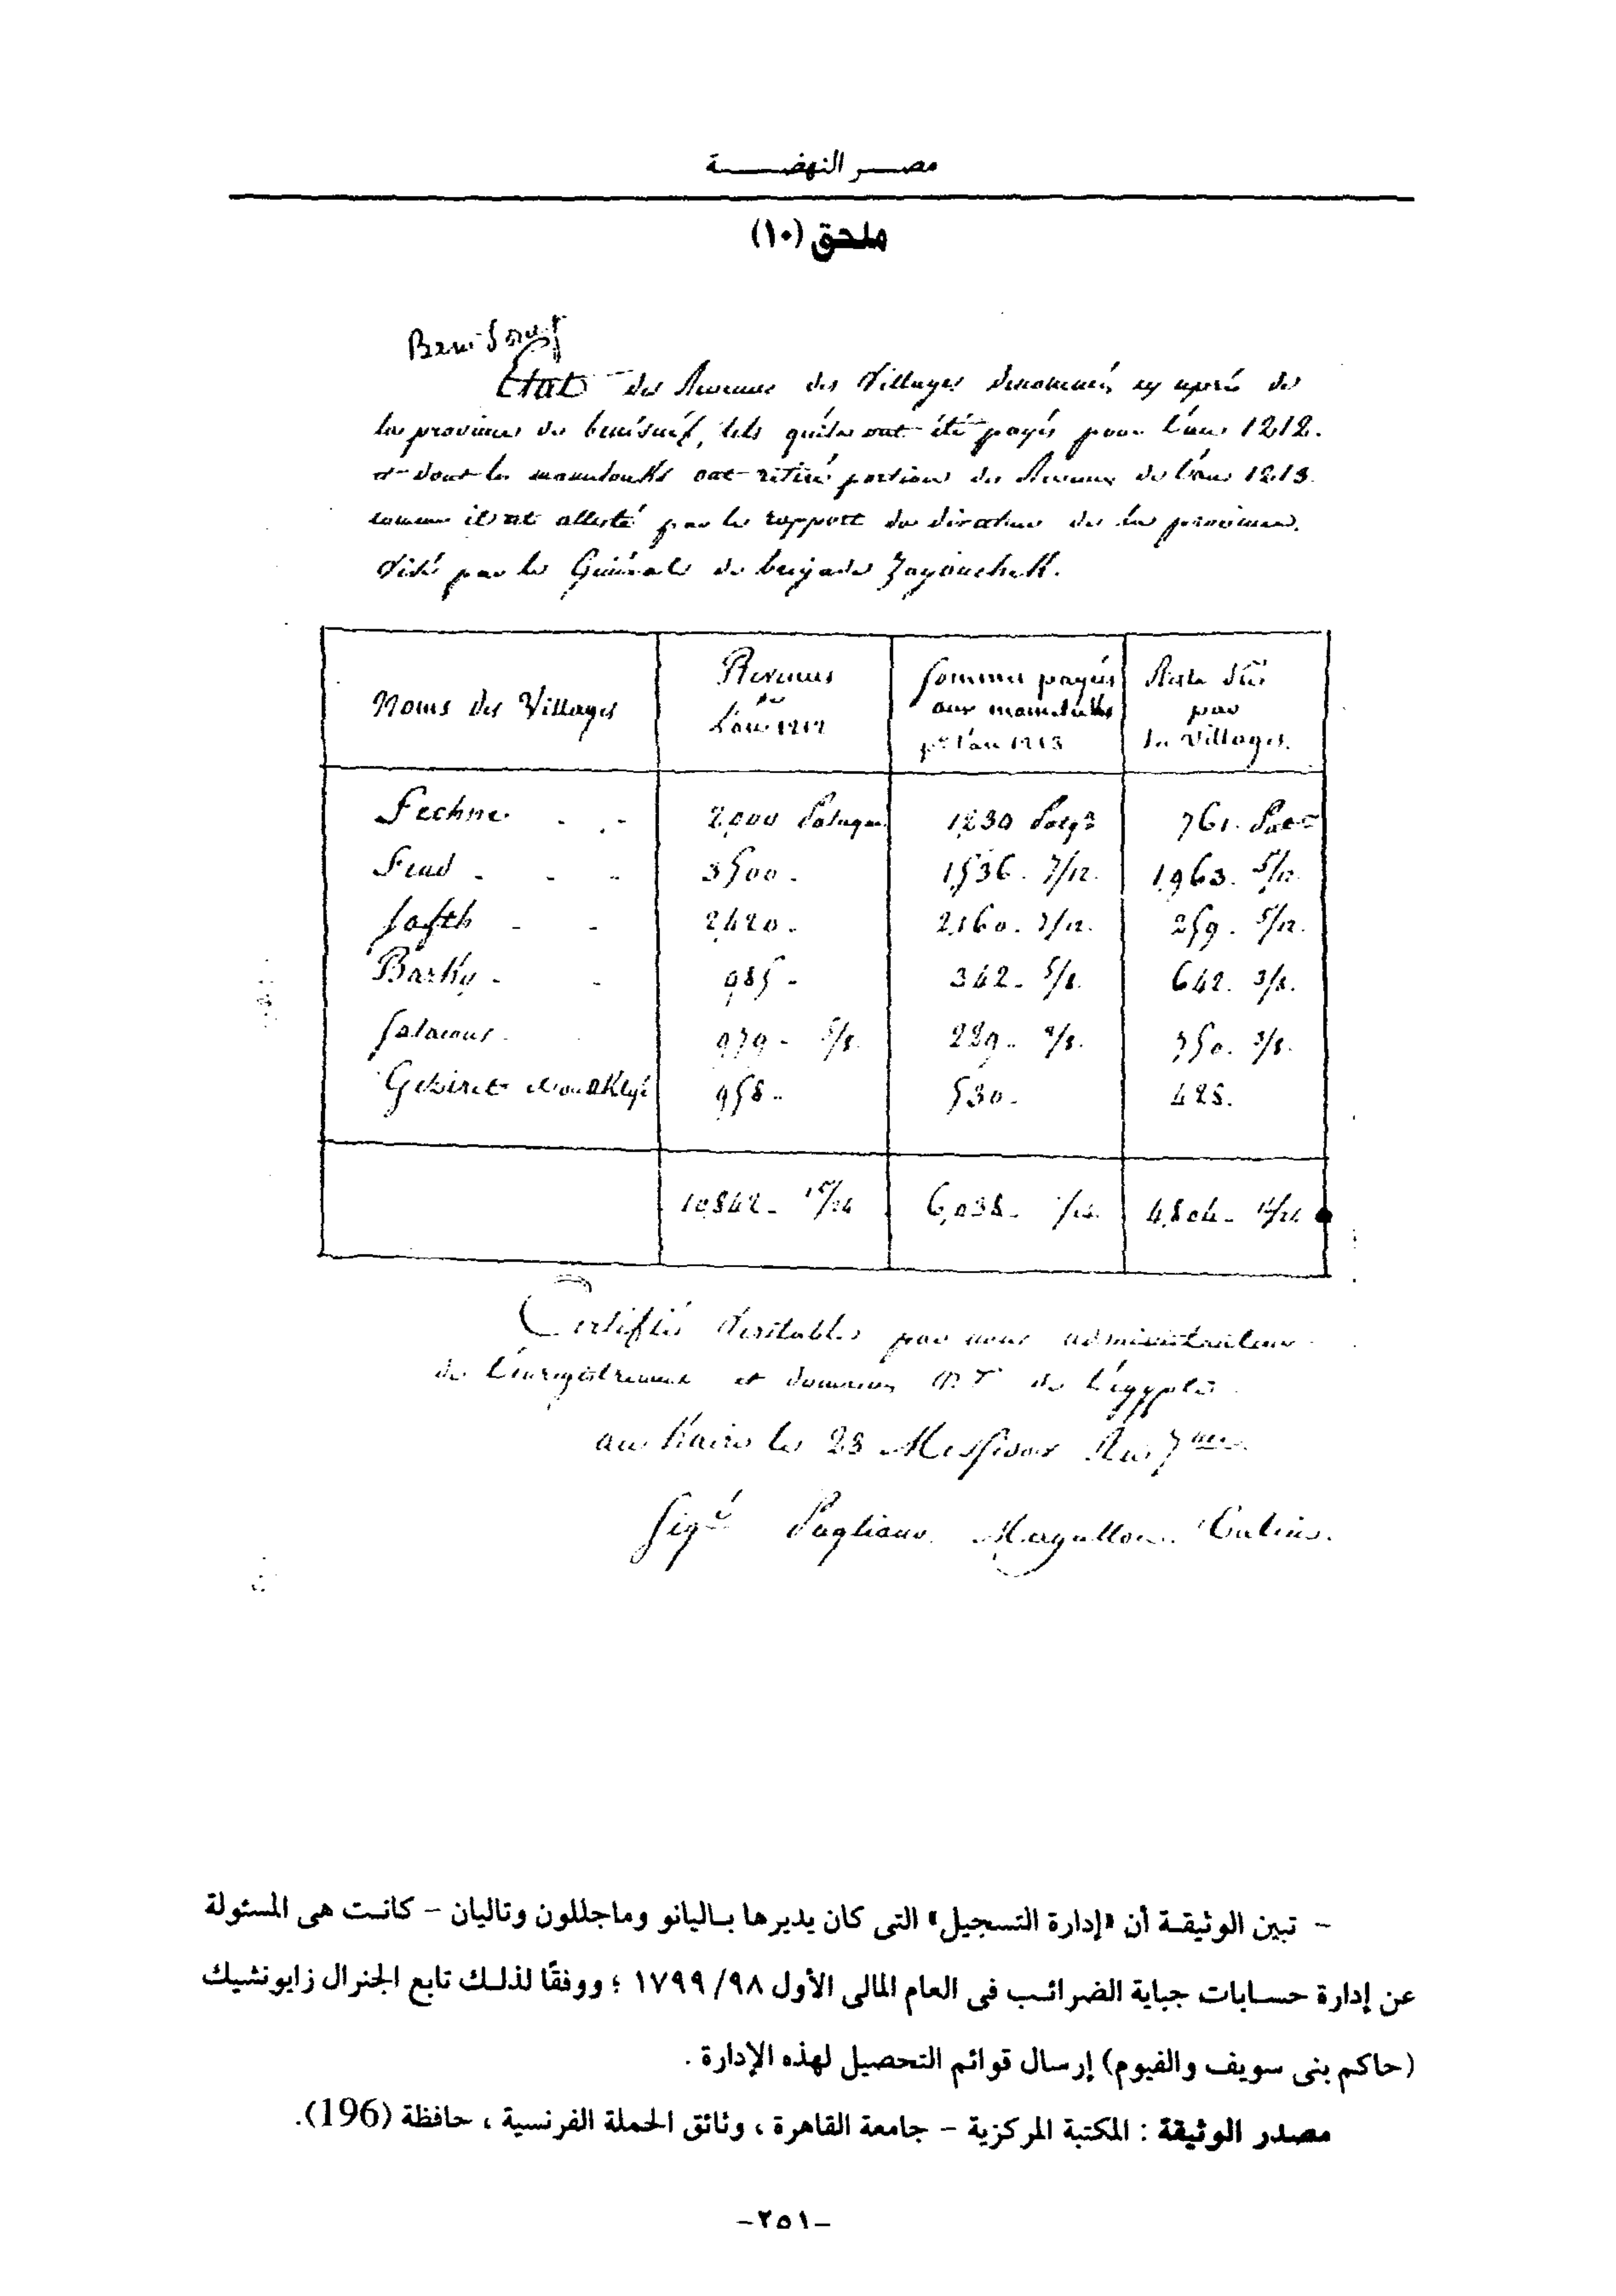 مصر النهضة
ملحق (١٠)
Beni Souef
Etat des Revenus des Villages denommés cy après de
la province de benisuef, tels quils ont été payés pour l'an 1212.
et dont les mamelouks ont retiré portion des Revenus de l'an 1213.
comme il est attesté par le rapport du directeur de la province.
Visé par le Général de brigade Zayoucheck.
Noms des Villages
Revenus
de
L'an 1212
Sommes payées
aux mamelukes
pr l'an 1213
Reste dû
par
les Villages.
Fechne 2,000 Pataques 1,230 761.
3500. 1,536. 7/12. 1,963. 5/12.
Safth 2,420. 2,160. 7/12. 259. 5/12.
Barky 985 342. 5/8. 642. 3/8.
979 5/8. 229. 750. 3/8.
Geziret 958 530. 428.
10,842 6,038 4,804
Certifiés Véritables par nous administrateurs
de l'enregistrement et domaines de l'égypte
au Kaire le 23 Messidor An 7me.
Signé Pagliano. Magallon.
– تبين الوثيقة أن «إدارة التسجيل» التى كان يديرها باليانو وماجللون وتاليان – كانت هى المسئولة
عن إدارة حسابات جباية الضرائب فى العام المالى الأول ٩٨/ ١٧٩٩ ؛ ووفقًا لذلك تابع الجنرال زايونشيك
(حاكم بنى سويف والفيوم) إرسال قوائم التحصيل لهذه الإدارة .
مصدر الوثيقة : المكتبة المركزية – جامعة القاهرة ، وثائق الحملة الفرنسية ، حافظة (196).
-٢٥١-